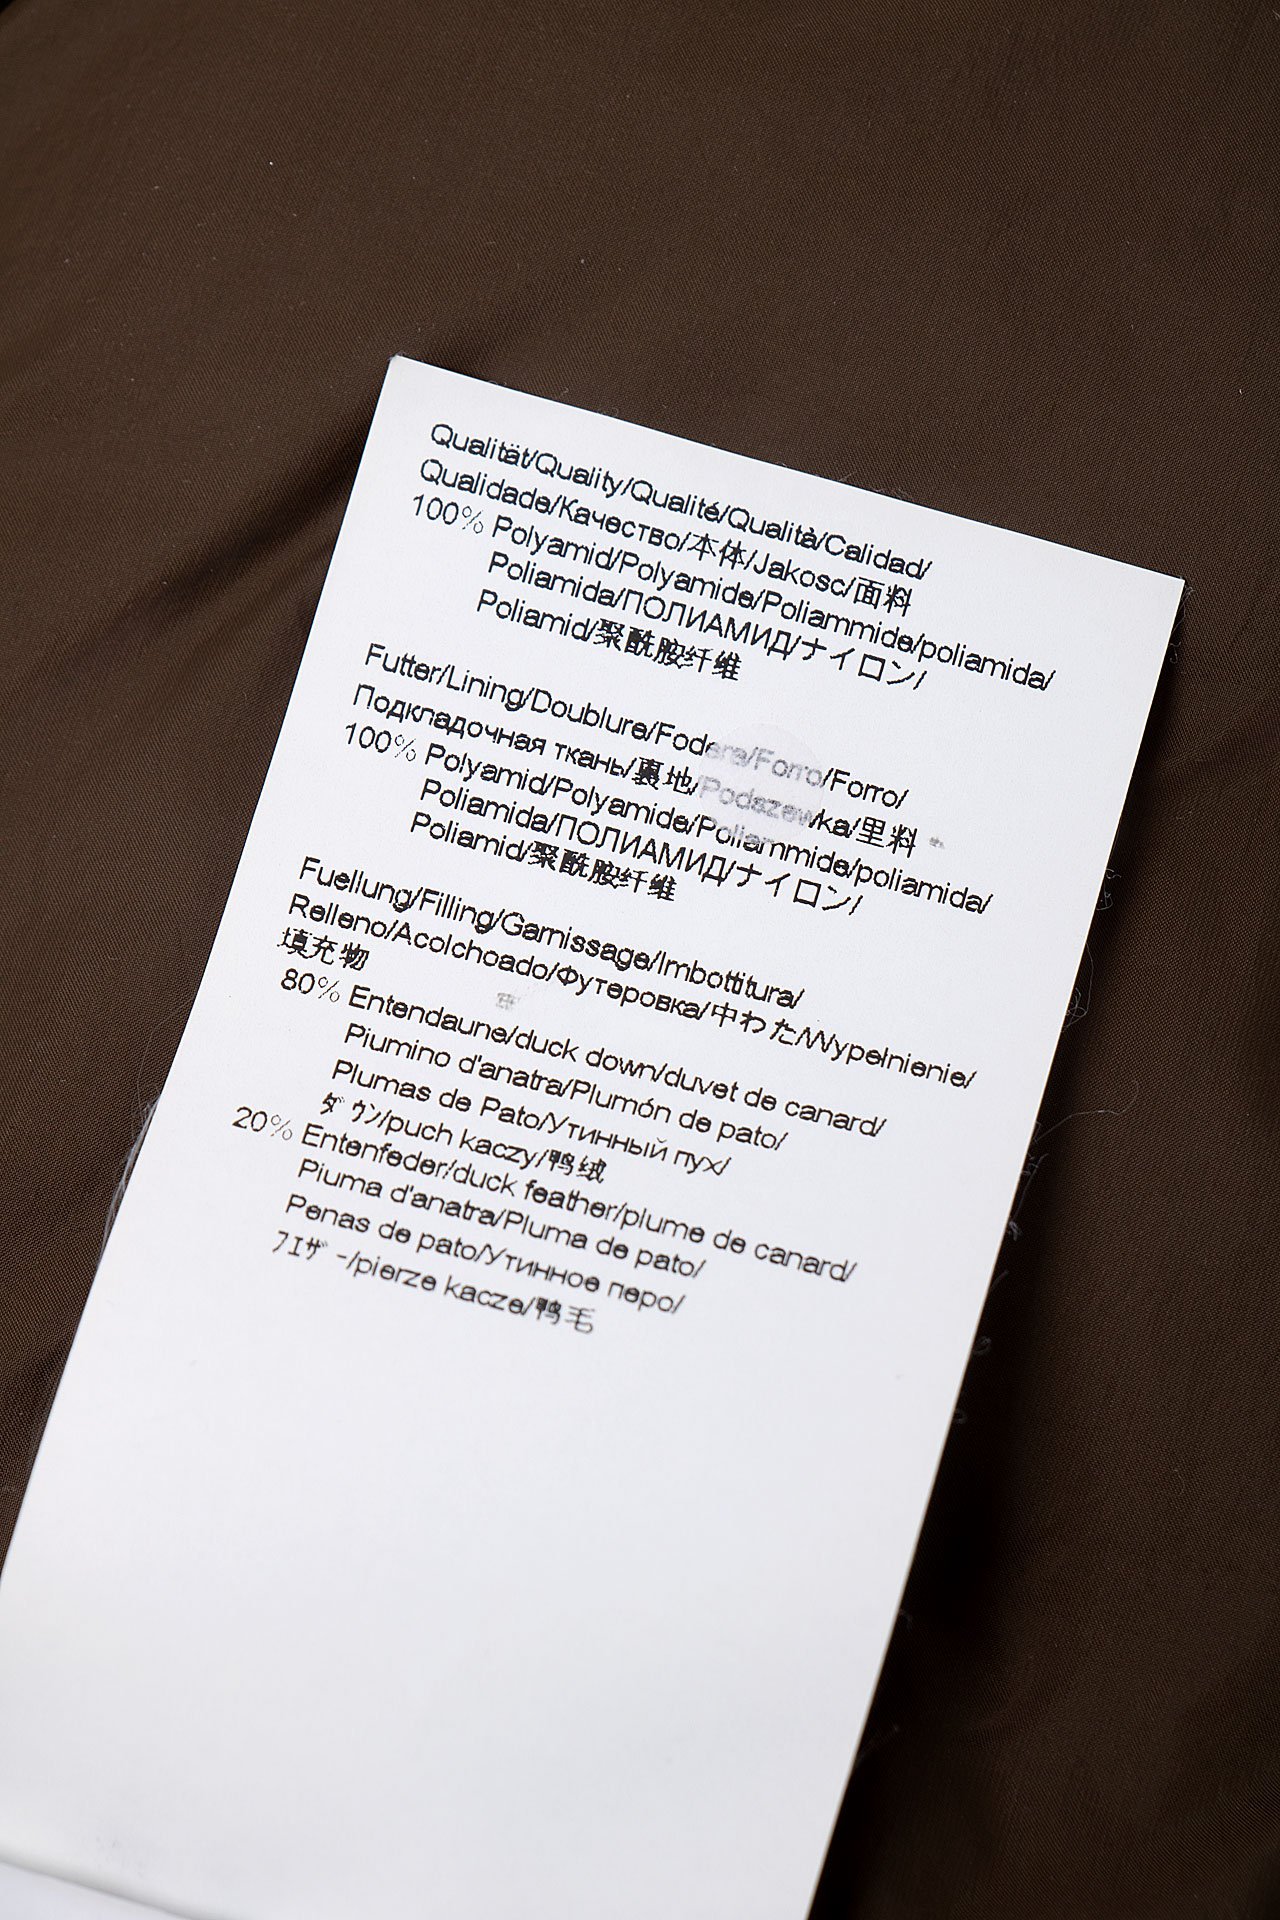 Qualität/Quality/Qualité/Qualità/Calidad/
Qualidade/Качество/本体/Jakosc/面料
100% Polyamid/Polyamide/Poliammide/poliamida/
Poliamida/ПОЛИАМИД/ナイロン/
Poliamid/聚酰胺纤维
Futter/Lining/Doublure/Fodera/Forro/Forro/
Подкладочная ткань/裏地/Podszewka/里料
100% Polyamid/Polyamide/Poliammide/poliamida/
Poliamida/ПОЛИАМИД/ナイロン/
Poliamid/聚酰胺纤维
Fuellung/Filling/Garnissage/Imbottitura/
Relleno/Acolchoado/Футеровка/中わた/Wypełnienie/
填充物
80% Entendaune/duck down/duvet de canard/
Piumino d'anatra/Plumón de pato/
Plumas de Pato/Утинный пух/
ダウン/puch kaczy/鸭绒
20% Entenfeder/duck feather/plume de canard/
Piuma d'anatra/Pluma de pato/
Penas de pato/Утинное перо/
フエザー/pierze kacze/鸭毛